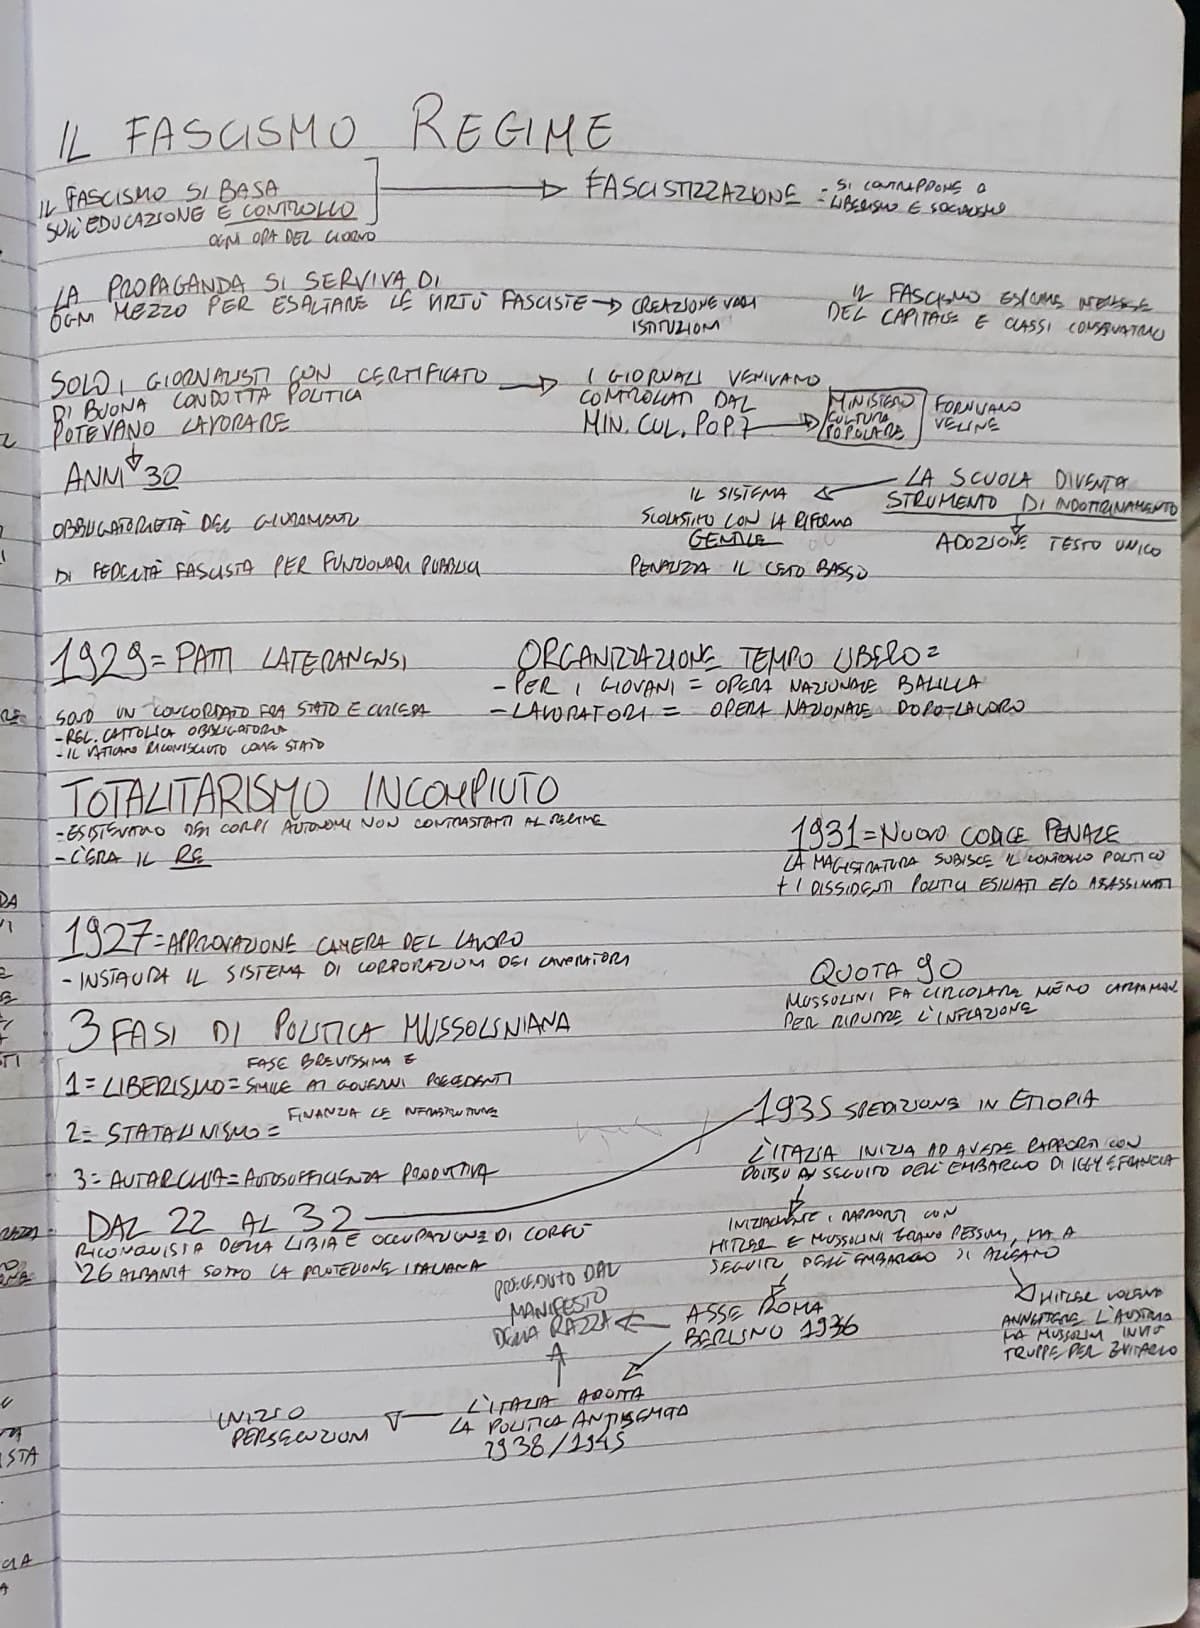 IL FASCISMO REGIME
IL FASCISMO SI BASA
SULL'EDUCAZIONE E CONTROLLO
OGNI ORA DEL GIORNO
FASCISTIZZAZIONE
- SI CONTRAPPONE A
- LIBERISMO E SOCIALISMO
LA PROPAGANDA SI SERVIVA DI
OGNI MEZZO PER ESALTARE LE VIRTÙ FASCISTE → CREAZIONE VARI
ISTITUZIONI
IL FASCISMO ESPRIME INTERESSE
DEL CAPITALE E CLASSI CONSERVATRICI
SOLO I GIORNALISTI CON CERTIFICATO
DI BUONA CONDOTTA POLITICA
POTEVANO LAVORARE
I GIORNALI VENIVANO
CONTROLLATI DAL
MIN. CUL. POP.
MINISTERO
CULTURA
POPOLARE
FORNIVANO
VELINE
ANNI 30
OBBLIGATORIETÀ DEL GIURAMENTO
DI FEDELTÀ FASCISTA PER FUNZIONARI PUBBLICI
LA SCUOLA DIVENTA
STRUMENTO DI INDOTTRINAMENTO
ADOZIONE TESTO UNICO
IL SISTEMA
SCOLASTICO CON LA RIFORMA
GENTILE
PENALIZZA IL CETO BASSO
1929 = PATTI LATERANENSI
SONO UN CONCORDATO FRA STATO E CHIESA
- REL. CATTOLICA OBBLIGATORIA
- IL VATICANO RICONOSCIUTO COME STATO
ORGANIZZAZIONE TEMPO LIBERO =
- PER I GIOVANI = OPERA NAZIONALE BALILLA
- LAVORATORI = OPERA NAZIONALE DOPO-LAVORO
TOTALITARISMO INCOMPIUTO
- ESISTEVANO DEI CORPI AUTONOMI NON CONTRASTANTI AL REGIME
- C'ERA IL RE
1931 = NUOVO CODICE PENALE
LA MAGISTRATURA SUBISCE IL CONTROLLO POLITICO
+ I DISSIDENTI POLITICI ESILIATI E/O ASASSINATI
1927 = APPROVAZIONE CAMERA DEL LAVORO
- INSTAURA IL SISTEMA DI CORPORAZIONI DEI LAVORATORI
QUOTA 90
MUSSOLINI FA CIRCOLARE MENO
PER RIDURRE L'INFLAZIONE
3 FASI DI POLITICA MUSSOLINIANA
FASE BREVISSIMA E
1 = LIBERISMO = SIMILE AI GOVERNI PRECEDENTI
FINANZIA LE INFRASTRUTTURE
2 = STATALINISMO =
3 = AUTARCHIA = AUTOSUFFICIENZA PRODUTTIVA
DAL 22 AL 32
RICONQUISTA DELLA LIBIA E OCCUPAZIONE DI CORFÙ
'26 ALBANIA SOTTO LA PROTEZIONE ITALIANA
1935 SPEDIZIONE IN ETIOPIA
L'ITALIA INIZIA AD AVERE RAPPORTI CON
A SEGUITO DELL'EMBARGO DI E FRANCIA
INIZIALMENTE I RAPPORTI CON
HITLER E MUSSOLINI ERANO PESSIMI, MA A
SEGUITO DELL'EMBARGO SI ALLEANO
HITLER VOLEVA
ANNETTERE L'AUSTRIA
MA MUSSOLINI INVIÒ
TRUPPE PER EVITARLO
ASSE ROMA
BERLINO 1936
PRECEDUTO DAL
MANIFESTO
DELLA RAZZA
L'ITALIA ADOTTA
LA POLITICA ANTISEMITA
1938/1945
INIZIO
PERSECUZIONI